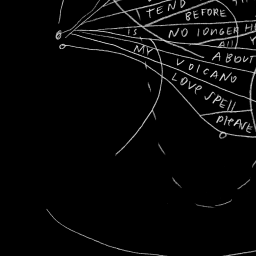 I TEND
BEFORE
IS NO LONGER
All
MY
ABOUT
VOLCANO
LOVE SPELL
PLEASE